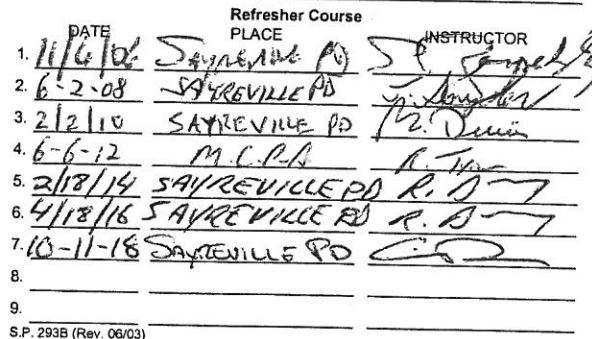 Refresher Course
DATE PLACE INSTRUCTOR
1. 11/6/06 SAYREVILLE PD
2. 6-2-08 SAYREVILLE PD
3. 2/2/10 SAYREVILLE PD
4. 6-6-12 M.C.P.A
5. 2/18/14 SAYREVILLE PD R.
6. 4/18/16 SAYREVILLE PD R.
7. 10-11-18 SAYREVILLE PD
8.
9.
S.P. 293B (Rev. 06/03)